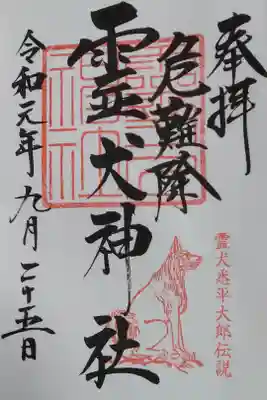 奉拝
危難除
霊犬神社
令和元年九月二十五日
霊犬悉平太郎伝説